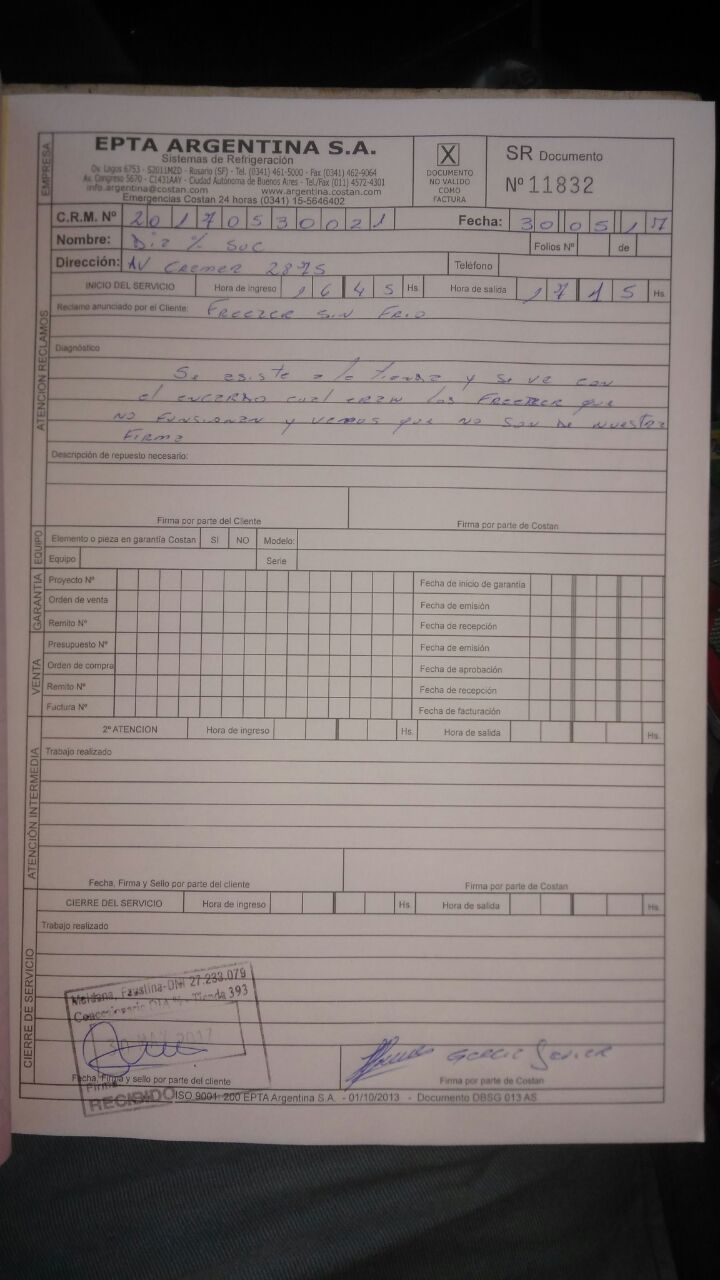 EMPRESA
EPTA ARGENTINA S.A.
Sistemas de Refrigeración
Ov. Lagos 6753 - S2011MZD - Rosario (SF) - Tel. (0341) 461-5000 - Fax (0341) 462-9064
Av. Congreso 5670 - C1431AAY - Ciudad Autónoma de Buenos Aires - Tel./Fax (011) 4572-4301
info.argentina@costan.com www.argentina.costan.com
Emergencias Costan 24 horas (0341) 15-5646402
X
DOCUMENTO
NO VALIDO
COMO
FACTURA
SR Documento
Nº 11832
C.R.M. Nº 20170530021 Fecha: 30 05 17
Nombre: Dia % Suc Folios Nº de
Dirección: AV CREMER 2875 Teléfono
ATENCION RECLAMOS
INICIO DEL SERVICIO Hora de ingreso 1645 Hs. Hora de salida 1715 Hs.
Reclamo anunciado por el Cliente: FREEZER SIN FRIO
Diagnóstico
Se asiste a la tienda y se ve con
el encargado cual eran los FREEZER que
no FUNSIONAN y vemos que no son de nuestra
FIRMA
Descripción de repuesto necesario:
Firma por parte del Cliente Firma por parte de Costan
EQUIPO
Elemento o pieza en garantía Costan SI NO Modelo:
Equipo Serie
GARANTIA
Proyecto Nº Fecha de inicio de garantía
Orden de venta Fecha de emisión
Remito Nº Fecha de recepción
VENTA
Presupuesto Nº Fecha de emisión
Orden de compra Fecha de aprobación
Remito Nº Fecha de recepción
Factura Nº Fecha de facturación
ATENCIÓN INTERMEDIA
2º ATENCION Hora de ingreso Hs. Hora de salida Hs.
Trabajo realizado
Fecha, Firma y Sello por parte del cliente Firma por parte de Costan
CIERRE DE SERVICIO
CIERRE DEL SERVICIO Hora de ingreso Hs Hora de salida Hs.
Trabajo realizado
Maldona, Faustina-DNI 27.233.079
Concesionario DIA % Tienda 393
30 MAY 2017
Javier
Fecha, Firma y sello por parte del cliente Firma por parte de Costan
Firma
RECIBIDO
ISO 9001: 200 EPTA Argentina S.A. - 01/10/2013 - Documento DBSG 013 AS